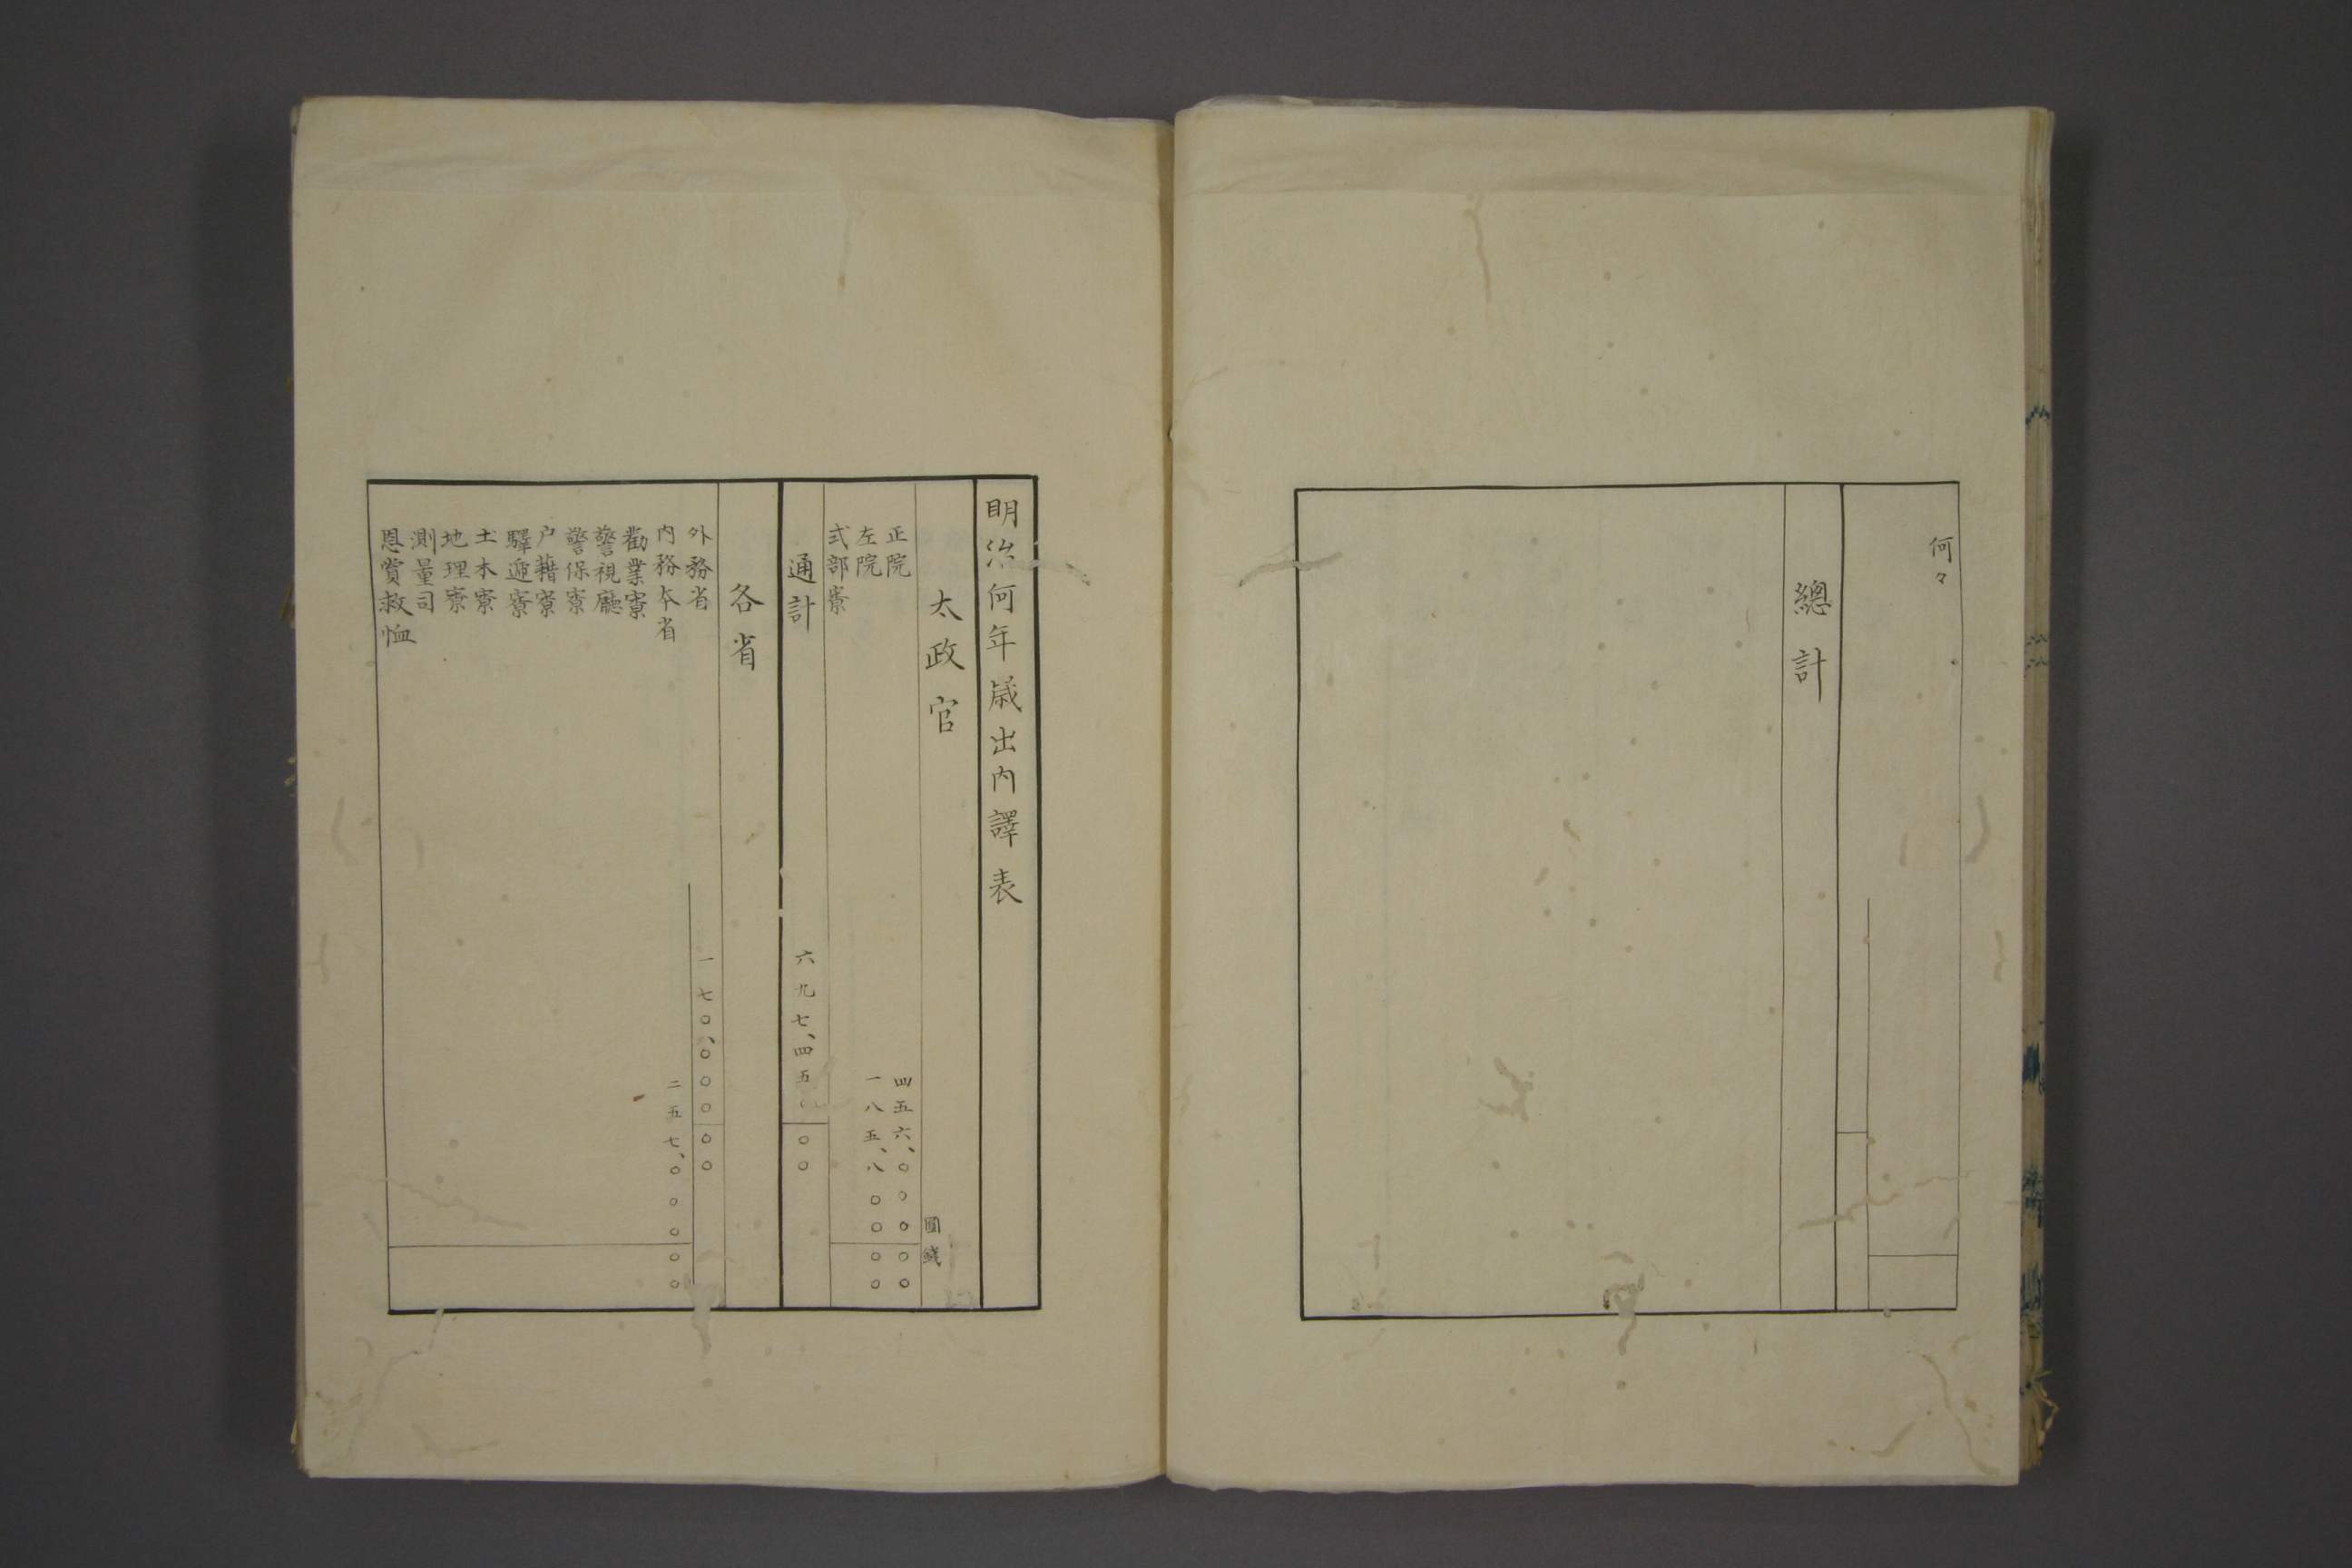 何々
總計
明治何年歳出内譯表
太政官 圓 錢
正院 四五六、〇〇〇〇〇
左院 一八五、八〇〇〇〇
式部寮
通計 六九七、四五〇〇
各省
外務省 一七〇、〇〇〇〇〇
内務本省 二五七、〇〇〇〇〇
勸業寮
警視廳
警保寮
户藉寮
驛逓寮
土木寮
地理寮
測量司
恩賞救恤